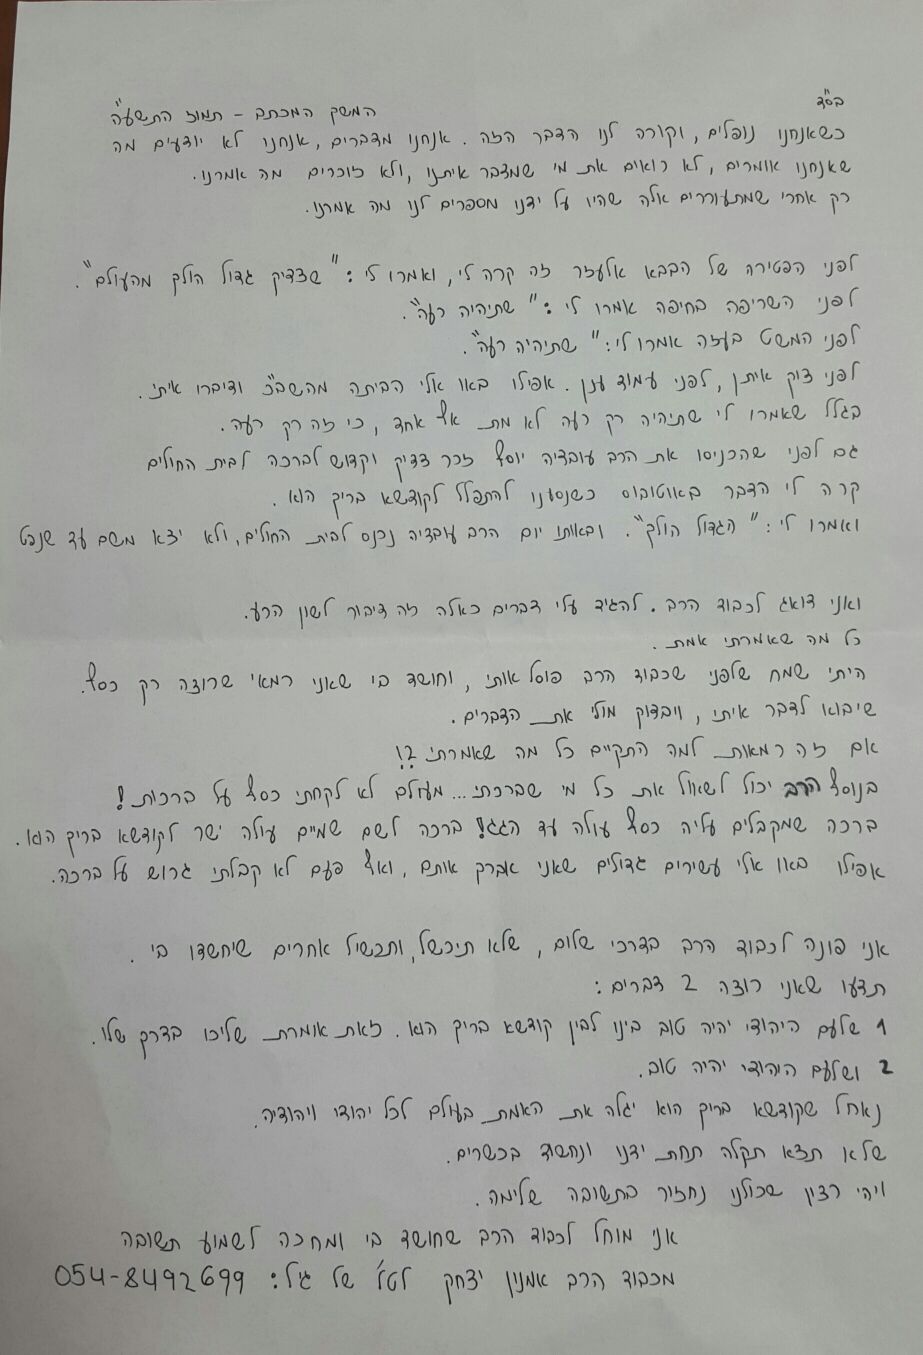 בס"ד
המשך המכתב - תמוז התשע"ה
כשאנחנו נופלים, וקורה לנו הדבר הזה. אנחנו מדברים, אנחנו לא יודעים מה
שאנחנו אומרים, לא רואים את מי שמדבר איתנו, ולא זוכרים מה אמרנו.
רק אחרי שמתעוררים אלה שהיו על ידנו מספרים לנו מה אמרנו.
לפני הפטירה של הבבא אלעזר זה קרה לי, ואמרו לי: "שצדיק גדול הולך מהעולם".
לפני השריפה בחיפה אמרו לי: "שתיהיה רעה".
לפני המשט בעזה אמרו לי: "שתיהיה רעה".
לפני צוק איתן, לפני עמוד ענן. אפילו באו אלי הביתה מהשב"כ ודיברו איתי.
בגלל שאמרו לי שתיהיה רק רעה לא מת אף אחד, כי זה רק רעה.
גם לפני שהכניסו את הרב עובדיה יוסף זכר צדיק וקדוש לברכה לבית החולים
קרה לי הדבר באוטובוס כשנסענו להתפלל לקודשא בריך הוא.
ואמרו לי: "הגדול הולך". ובאותו יום הרב עובדיה נכנס לבית החולים, ולא יצא משם עד שנפט
ואני דואג לכבוד הרב. להגיד עלי דברים כאלה זה דיבור לשון הרע.
כל מה שאמרתי אמת.
הייתי שמח שלפני שכבוד הרב פוסל אותי, וחושד בי שאני רמאי שרוצה רק כסף.
שיבוא לדבר איתי, ויבדוק מולי את הדברים.
אם זה רמאות למה התקיים כל מה שאמרתי?!
בנוסף הרב יכול לשאול את כל מי שברכתי... מעולם לא לקחתי כסף על ברכות!
ברכה שמקבלים עליה כסף עולה עד הגג! ברכה לשם שמיים עולה ישר לקודשא בריך הוא.
אפילו באו אלי עשירים גדולים שאני אברך אותם, ואף פעם לא קבלתי גרוש על ברכה.
אני פונה לכבוד הרב בדרכי שלום, שלא תיכשל, ותכשיל אחרים שיחשדו בי.
תדעו שאני רוצה 2 דברים:
1 שלעם היהודי יהיה טוב בינו לבין קודשא בריך הוא. זאת אומרת שילכו בדרך שלו.
2 ושלעם היהודי יהיה טוב.
נאחל שקודשא בריך הוא יגלה את האמת בעולם לכל יהודי ויהודיה.
שלא תצא תקלה תחת ידנו ונחשוד בכשרים.
ויהי רצון שכולנו נחזור בתשובה שלימה.
אני מוחל לכבוד הרב שחושד בי ומחכה לשמוע תשובה
מכבוד הרב אמנון יצחק לטל' של גיל: 054-8492699